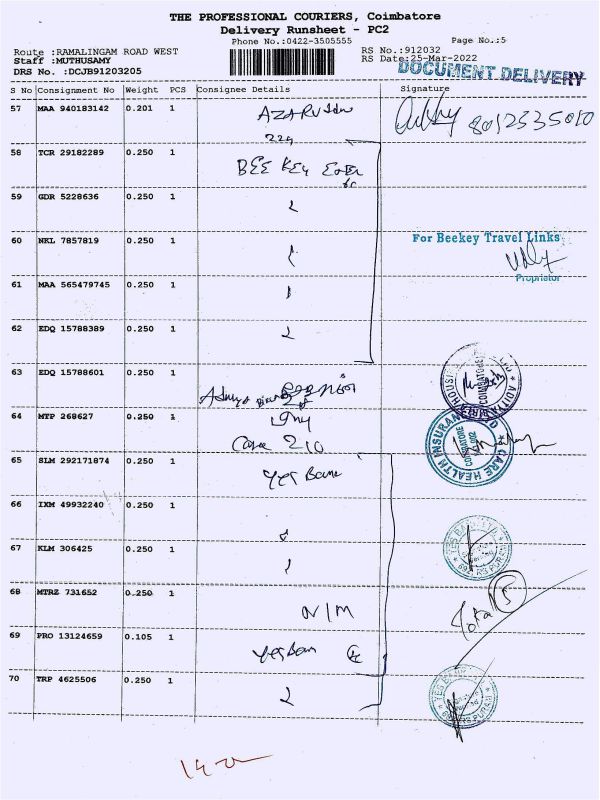 THE PROFESSIONAL COURIERS, Coimbatore
Delivery Runsheet - PC2
Phone No.:0422-3505555
Page No.:5
Route :RAMALINGAM ROAD WEST
RS No.:912032
Staff :MUTHUSAMY
RS Date:25-Mar-2022
DRS No. :DCJB91203205
DOCUMENT DELIVERY
S No Consignment No Weight PCS Consignee Details Signature
57 MAA 940183142 0.201 1
8012335010
224
58 TCR 29182289 0.250 1
BEE KEY
59 GDR 5228636 0.250 1
60 NKL 7857819 0.250 1
For Beekey Travel Links
Proprietor
61 MAA 565479745 0.250 1
62 EDQ 15788389 0.250 1
63 EDQ 15788601 0.250 1
COIMBATORE
64 MTP 268627 0.250 1
Care 210
CARE HEALTH INSURANCE
COIMBATORE
65 SLM 292171874 0.250 1
Yes Bank
66 IXM 49932240 0.250 1
67 KLM 306425 0.250 1
68 MTRZ 731652 0.250 1
N/M
Total 5
69 PRO 13124659 0.105 1
Yes Bank
70 TRP 4625506 0.250 1